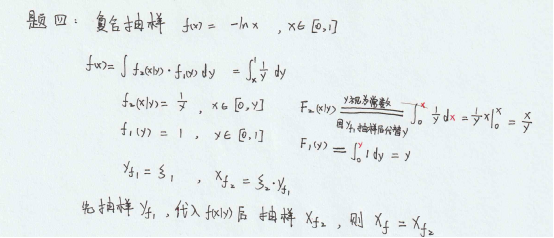 题四：复合抽样 f(x) = -ln x , x∈[0,1]
f(x) = ∫ f₂(x|y)·f₁(y) dy = ∫ₓ¹ 1/y dy
f₂(x|y) = 1/y , x∈[0,y] F₂(x|y) y视为常数 因yf₁抽样后代替y ∫₀ˣ 1/y dx = 1/y x|₀ˣ = x/y
f₁(y) = 1 , y∈[0,1] F₁(y) = ∫₀ʸ 1 dy = y
yf₁ = ξ₁ , Xf₂ = ξ₂·yf₁
先抽样 yf₁ , 代入 f(x|y) 后 抽样 Xf₂ , 则 Xf = Xf₂